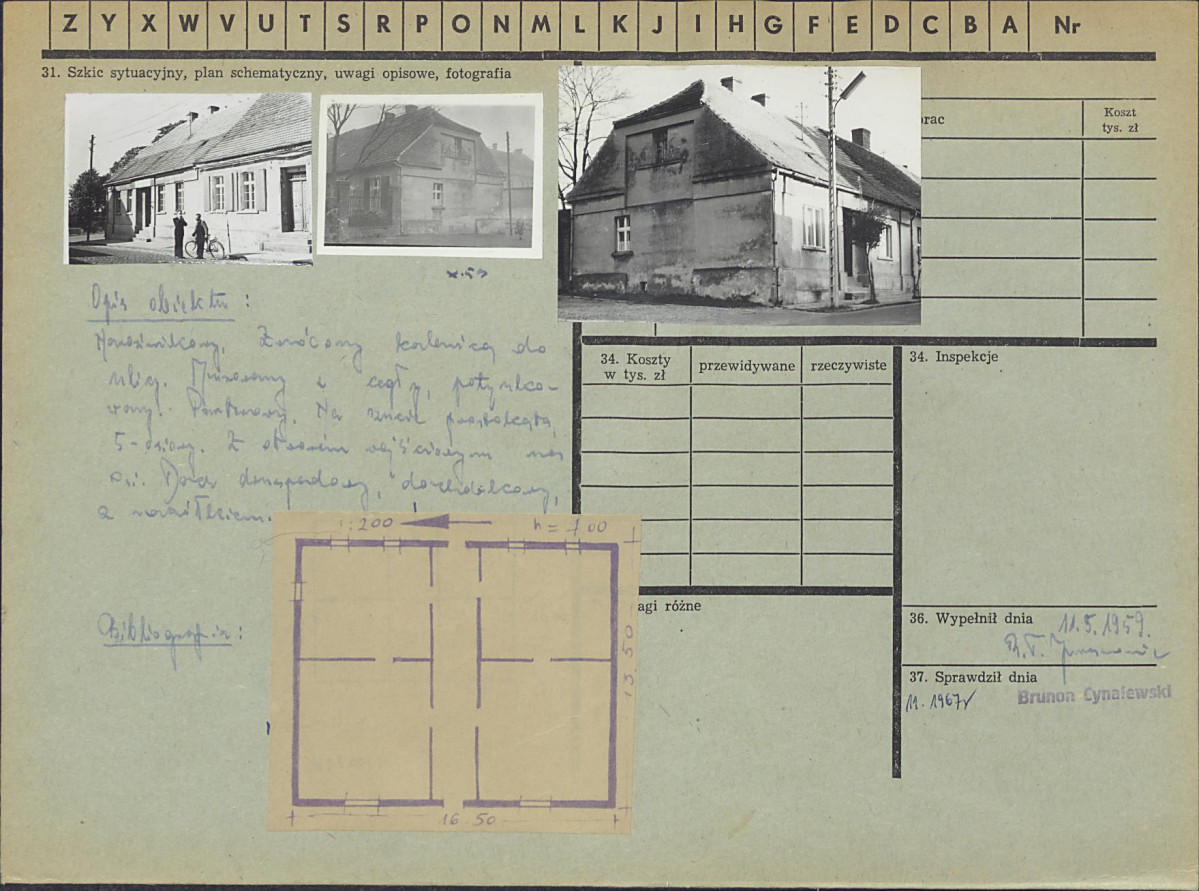 Z Y X W V U T S R P O N M L K J I H G F E D C B A Nr
31. Szkic sytuacyjny, plan schematyczny, uwagi opisowe, fotografia
rac
Koszt
tys. zł
Opis obiektu :
Zwrócony kalenicą do
ulicy. Murowany z cegły, potynko-
wany. Parterowy. Na rzucie prostokąta,
5-osiowy. Z otworem wejściowym na
osi. Dach dwuspadowy,
z naczółkiem.
Bibliografia :
1:200
h =
13.50
16.50
34. Koszty
w tys. zł
przewidywane
rzeczywiste
34. Inspekcje
agi różne
36. Wypełnił dnia
11.5.1959.
37. Sprawdził dnia
11.1967r
Brunon Cynalewski